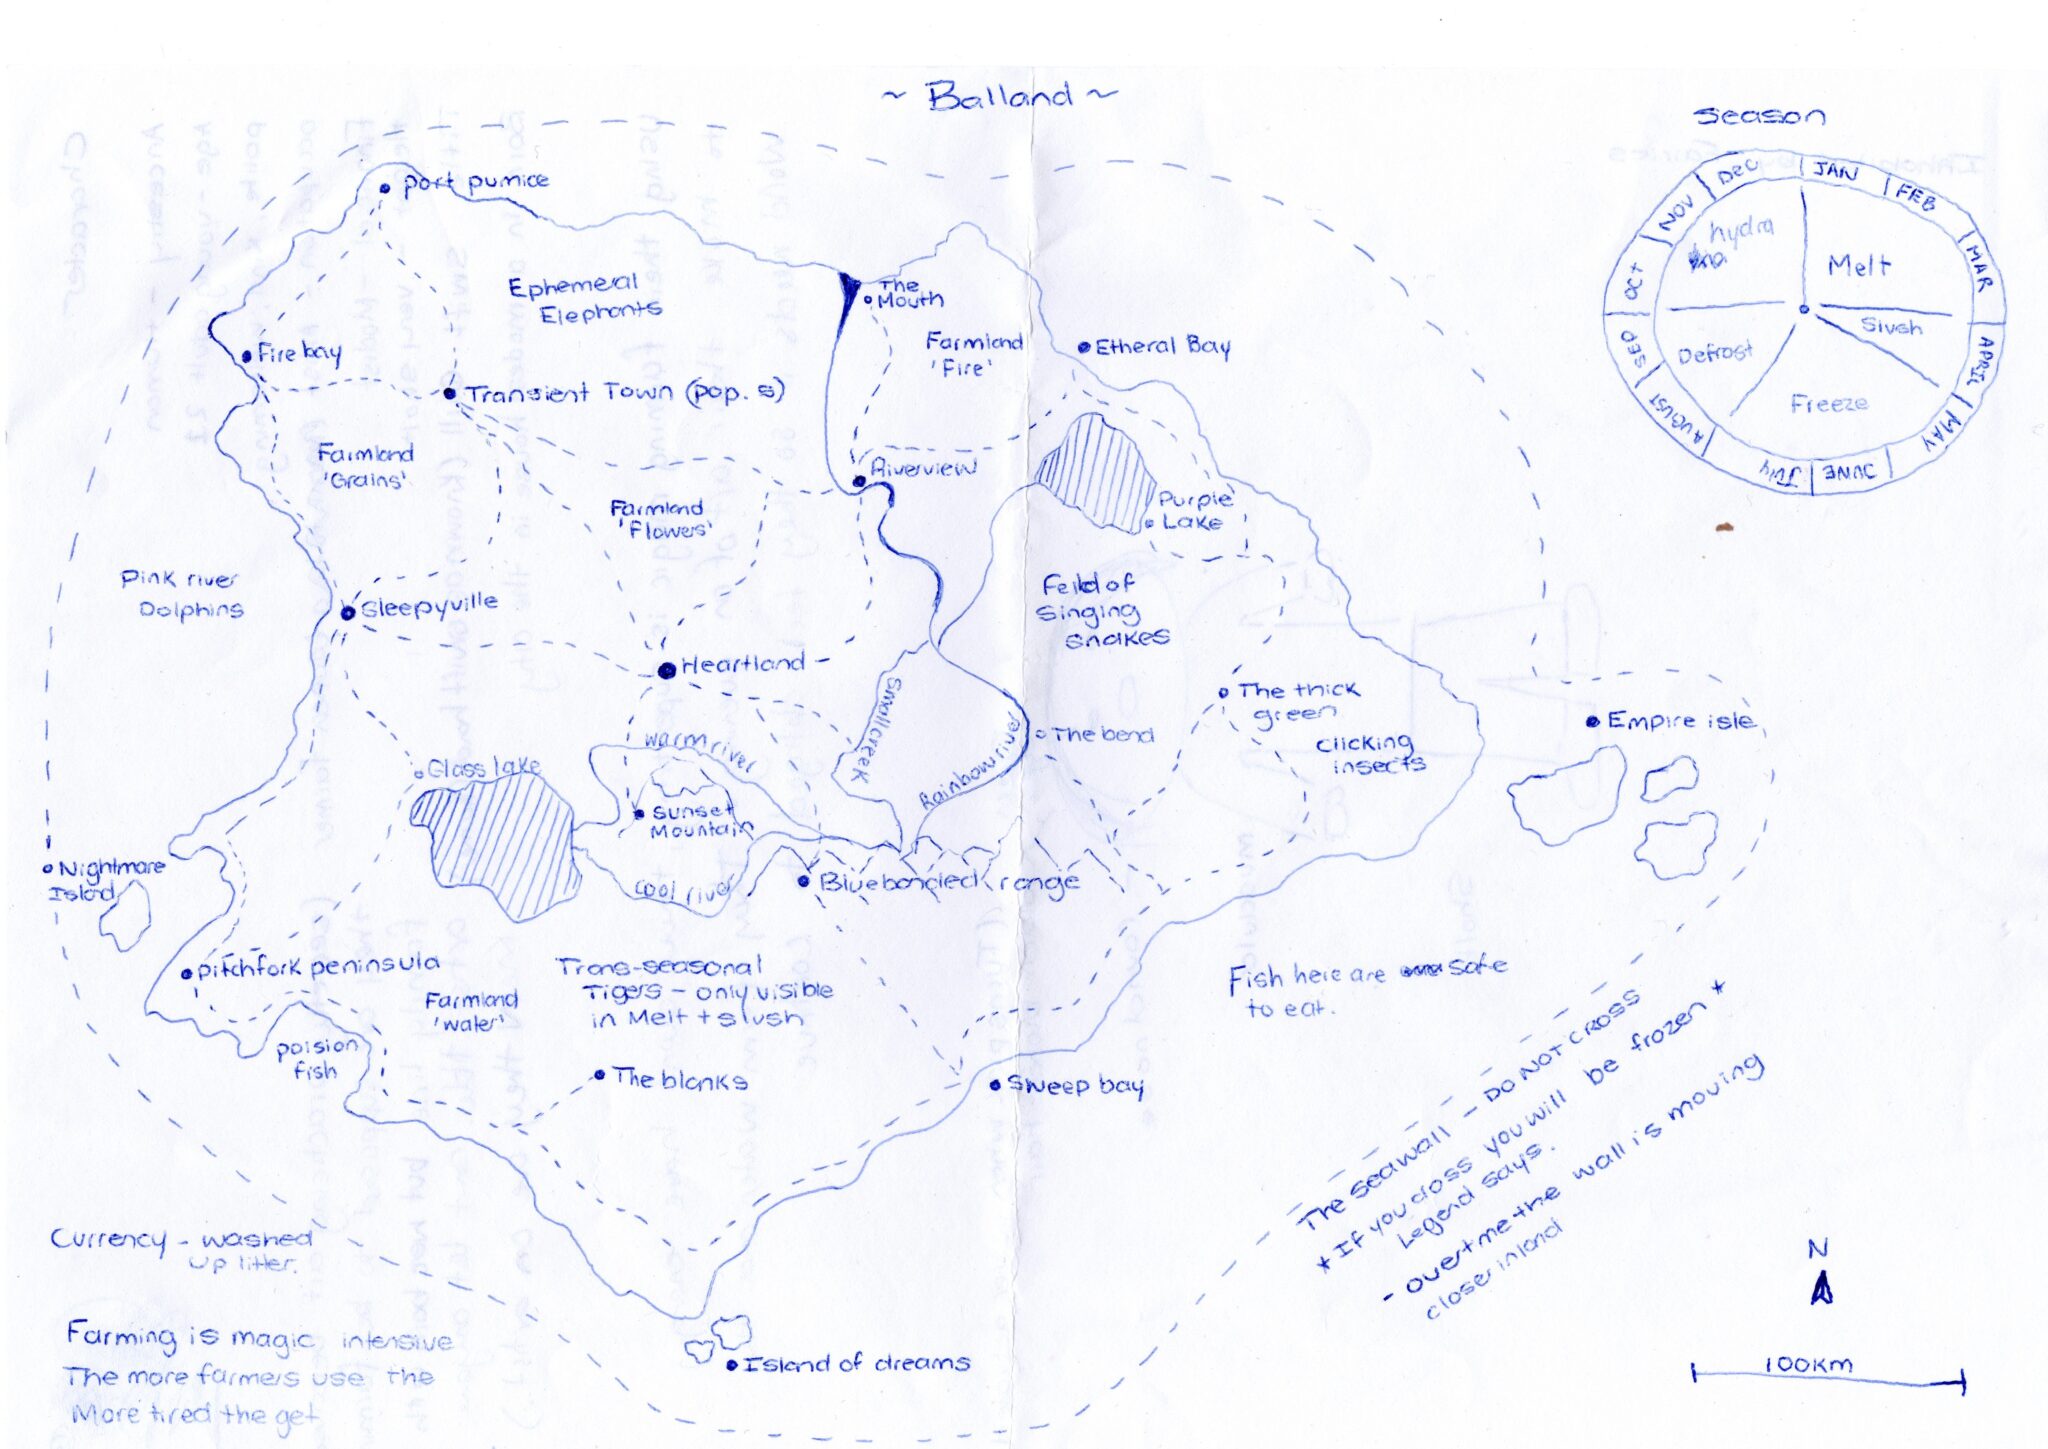 ~ Balland ~
Season
JAN
FEB
MAR
APRIL
MAY
JUNE
July
AUGUST
SEP
OCT
NOV
DEC
hydra
Melt
Slush
Freeze
Defrost
port pumice
Ephemeral
Elephants
The
Mouth
Farmland
'Fire'
Etheral Bay
Fire bay
Transient Town (pop. 5)
Farmland
'Grains'
Farmland
'Flowers'
Riverview
Purple
Lake
Pink river
Dolphins
Sleepyville
Feild of
Singing
snakes
Heartland
Small creek
The thick
green
Empire isle
warm river
Rainbow river
The bend
clicking
insects
Glass lake
Sunset
Mountain
Nightmare
Island
cool river
Bluebonded range
pitchfork peninsula
Farmland
'water'
Trans-seasonal
Tigers - only visible
in Melt + slush
Fish here are safe
to eat.
poision
fish
The blanks
Sweep bay
The seawall - DO NOT CROSS
* If you cross you will be frozen *
Legend says.
- overtime the wall is moving
closer inland
Currency - washed
up litter.
Farming is magic intensive
The more farmers use the
More tired the get
Island of dreams
N
100KM